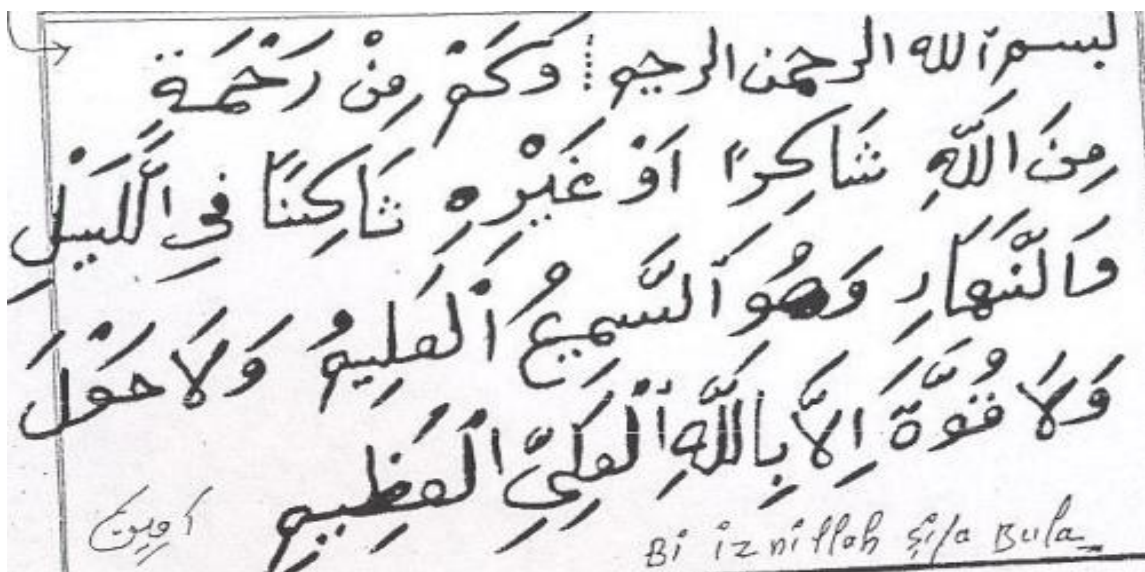 بسم الله الرحمن الرحيم وَكَمْ مِنْ رَحْمَةٍ
مِنَ اللّٰهِ شَاكِرًا اَوْ غَيْرِهِ ثَاكِنًا فِى الَّليْلِ
وَالنَّهَارِ وَهُوَ السَّمِيعُ الْعَلِيمُ وَلَا حَوْلَ
وَلَا قُوَّةَ اِلَّا بِاللّٰهِ الْعَلِىِّ الْعَظِيمِ
امين
Bi iznillah şifa Bula